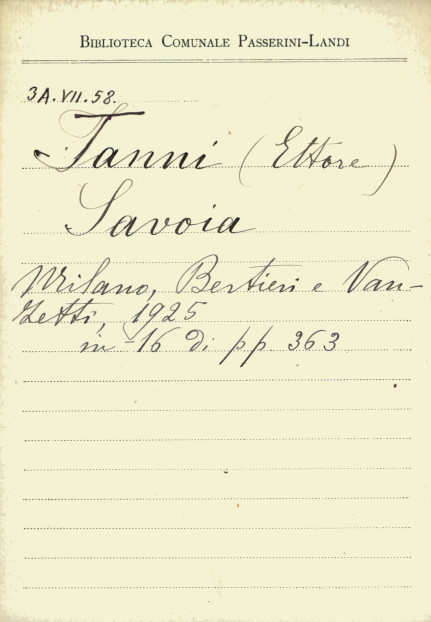 BIBLIOTECA COMUNALE PASSERINI-LANDI
3A.VII.58.
Fanni (Ettore)
Savoia
Milano, Bertieri e Van-
zetti, 1925
in-16 di pp 363